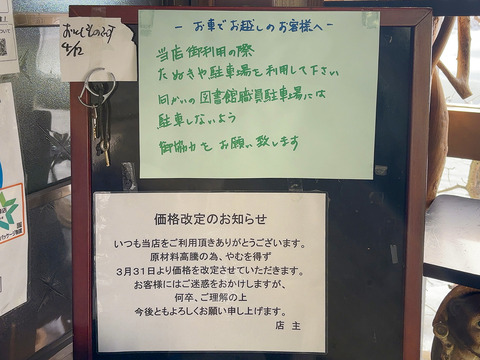 おとしものです
4/12
- お車でお越しのお客様へ -
当店御利用の際
たぬきや駐車場を利用して下さい
向かいの図書館職員駐車場には
駐車しないよう
御協力をお願い致します
価格改定のお知らせ
いつも当店をご利用頂きありがとうございます。
原材料高騰の為、やむを得ず
3月31日より価格を改定させていただきます。
お客様にはご迷惑をおかけしますが、
何卒、ご理解の上
今後ともよろしくお願い申し上げます。
店 主